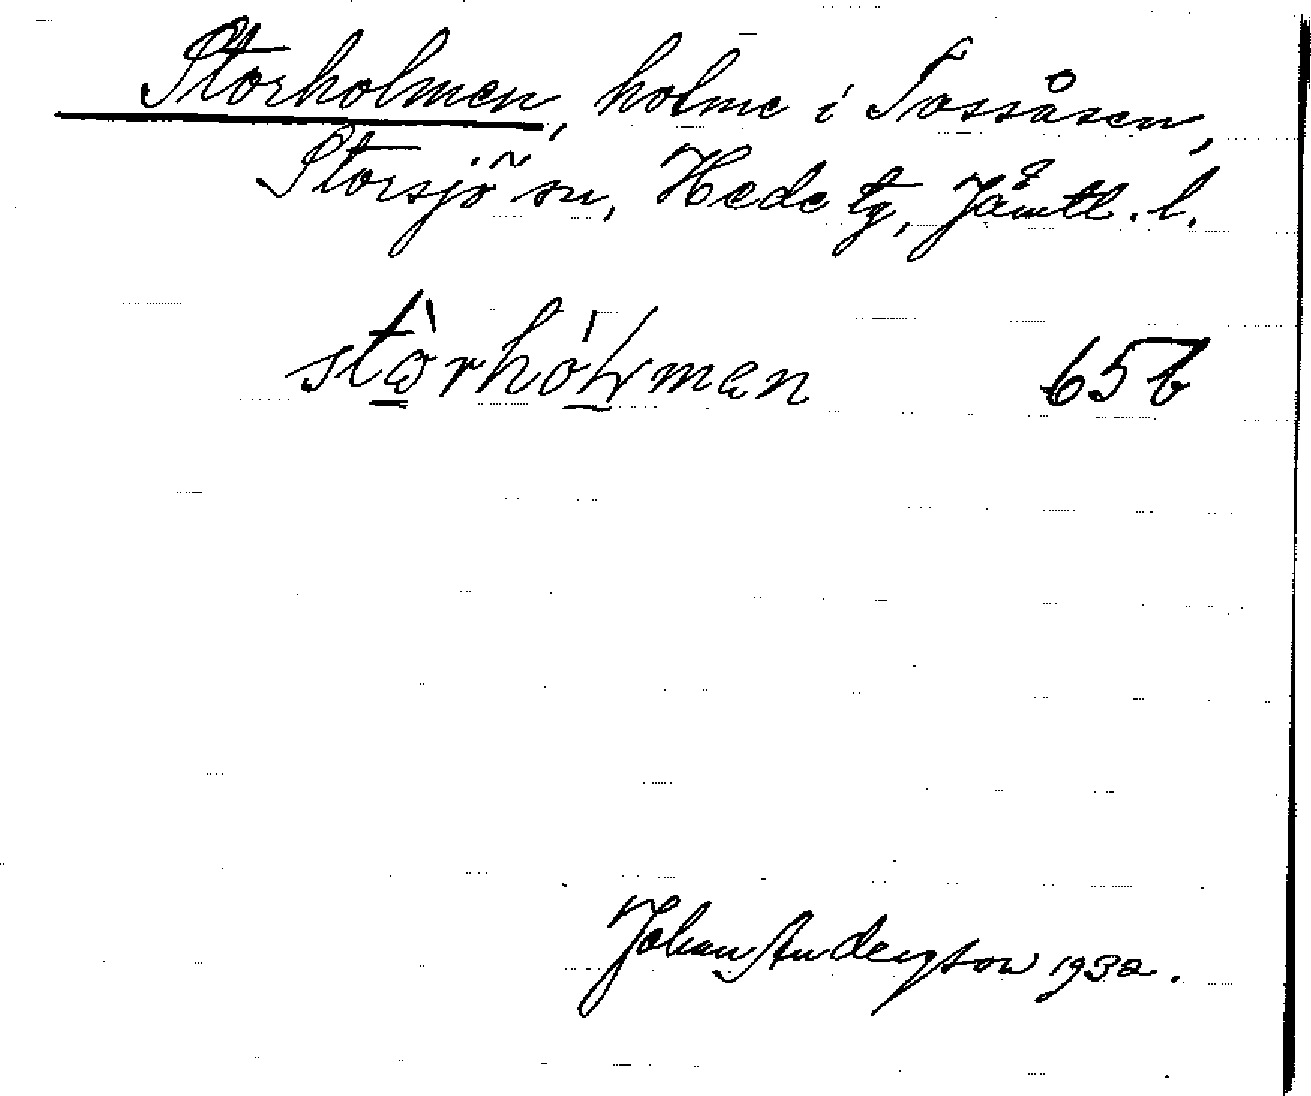 Storholmen, holme i Tossåsen,
Storsjö sn, Hede tg, Jämtl. l.
stòrhólmen 65b
Johan Andersson 1932.